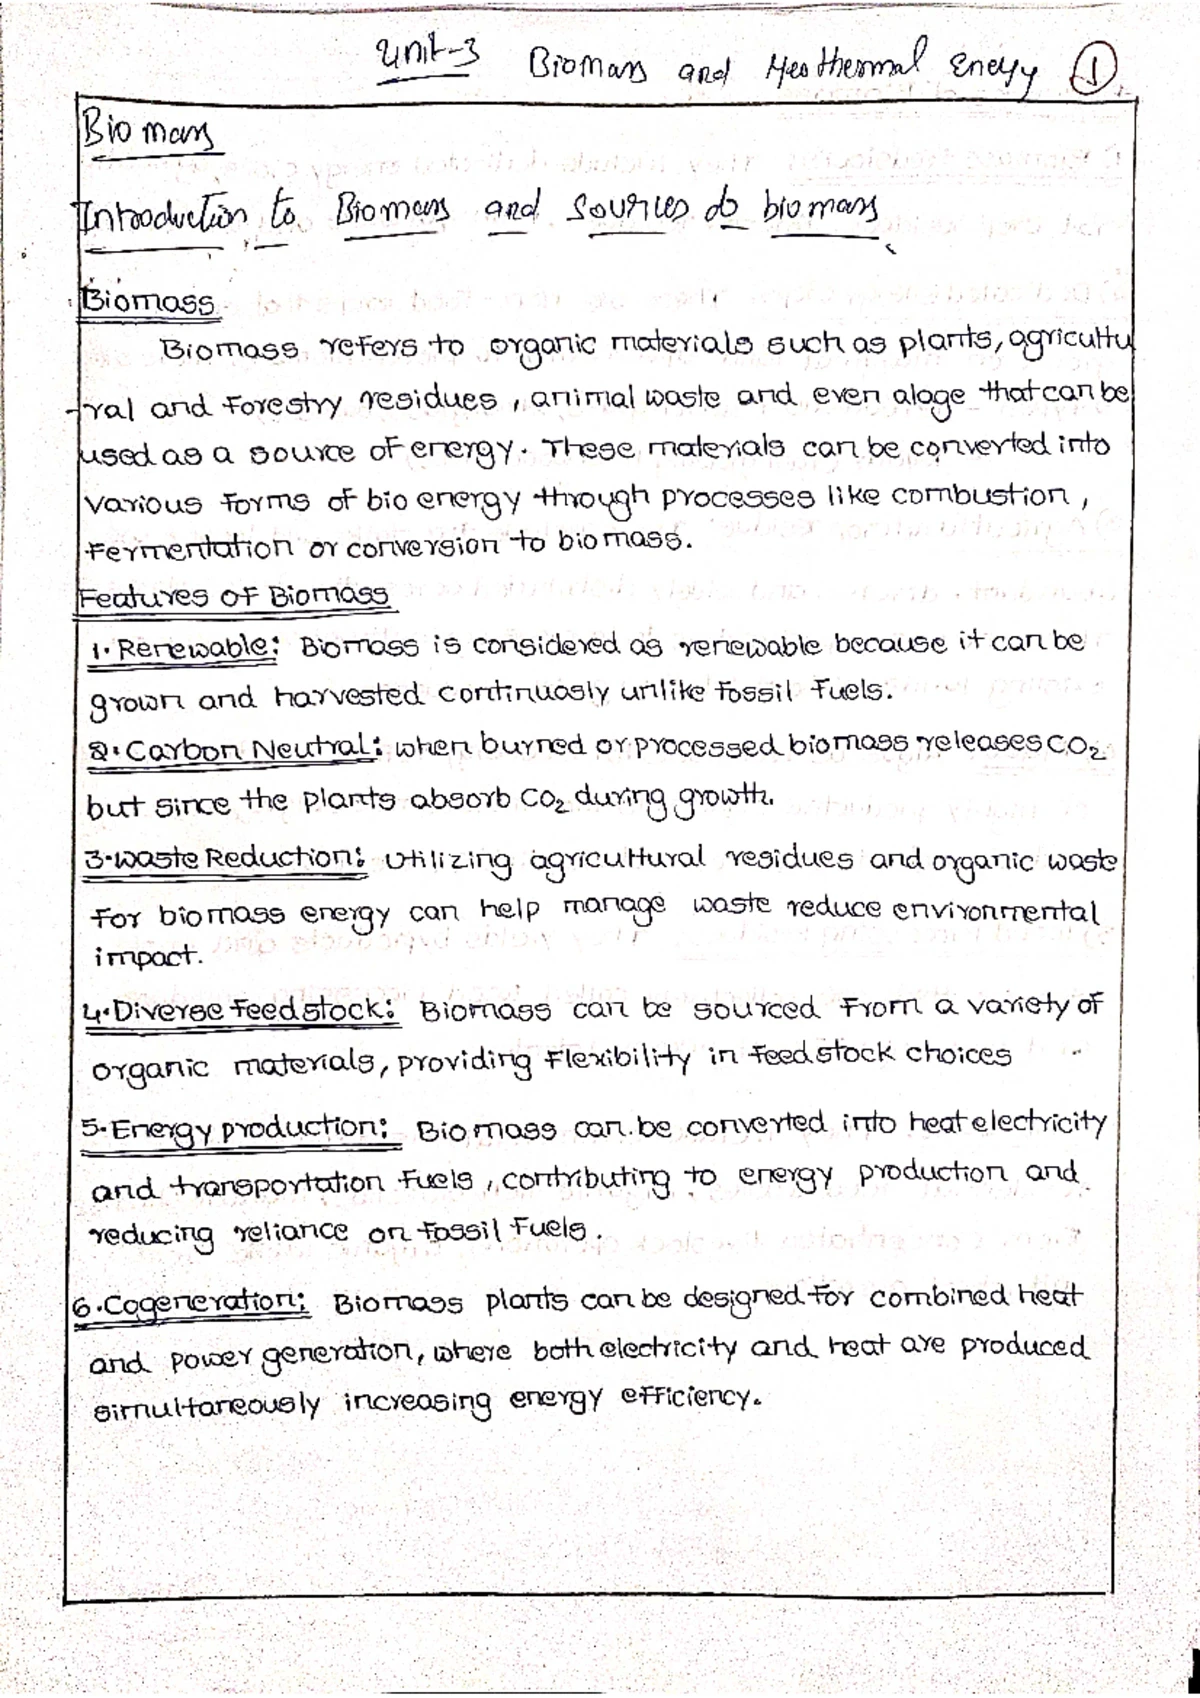 Unit-3 Biomass and Geothermal Energy 1
Biomass
Introduction to Biomass and Sources of biomass
Biomass
Biomass refers to organic materials such as plants, agricultu
ral and forestry residues, animal waste and even aloge that can be
used as a source of energy. These materials can be converted into
various forms of bio energy through processes like combustion,
fermentation or conversion to biomass.
Features of Biomass
1. Renewable: Biomass is considered as renewable because it can be
grown and harvested continuosly unlike fossil fuels.
2. Carbon Neutral: when burned or processed biomass releases CO2
but since the plants absorb CO2 during growth.
3. waste Reduction: Utilizing agricultural residues and organic waste
for biomass energy can help manage waste reduce environmental
impact.
4. Diverse feed stock: Biomass can be sourced from a variety of
organic materials, providing flexibility in feed stock choices
5. Energy production: Biomass can be converted into heat electricity
and transportation fuels, contributing to energy production and
reducing reliance on fossil fuels.
6. Cogeneration: Biomass plants can be designed for combined heat
and power generation, where both electricity and heat are produced
simultaneously increasing energy efficiency.